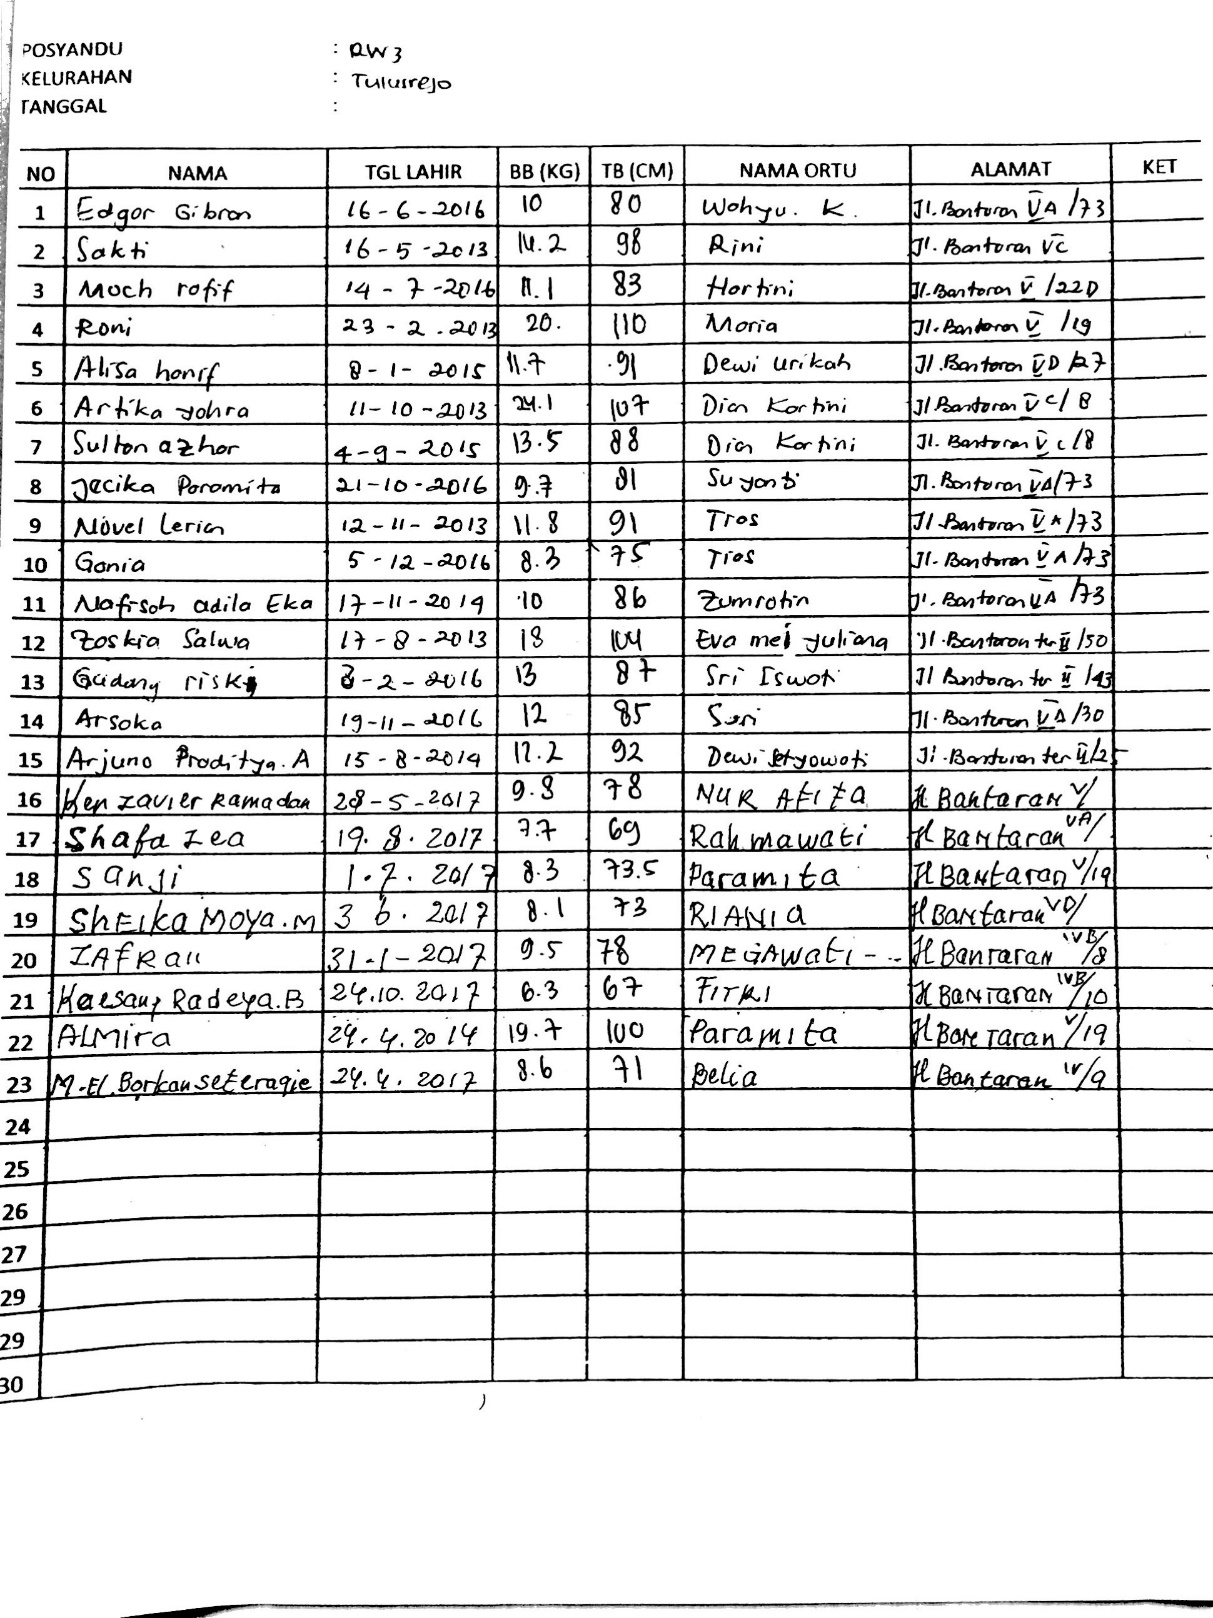 POSYANDU : RW 3
KELURAHAN : Tulusrejo
TANGGAL :
NO NAMA TGL LAHIR BB (KG) TB (CM) NAMA ORTU ALAMAT KET
1 Edgar Gibran 16-6-2016 10 80 Wahyu. K. Jl. Bantaran VA /73
2 Sakti 16-5-2013 14.2 98 Rini Jl. Bantaran VC
3 Moch rafif 14-7-2016 11.1 83 Hartini Jl. Bantaran V /22D
4 Roni 23-2.2013 20. 110 Maria Jl. Bantaran V /19
5 Alisa hanif 8-1-2015 11.7 91 Dewi urikah Jl. Bantaran VD /27
6 Artika yahra 11-10-2013 24.1 107 Dian Kartini Jl Bantaran VC/ 8
7 Sultan azhar 4-9-2015 13.5 88 Dian Kartini Jl. Bantaran V c/8
8 Jecika Paramita 21-10-2016 9.7 81 Suyanti Jl. Bantaran VA/73
9 Novel Lerian 12-11-2013 11.8 91 Tias Jl. Bantaran VA/73
10 Gania 5-12-2016 8.3 75 Tias Jl. Bantaran VA/73
11 Nafisah adila Eka 17-11-2014 10 86 Zumrotin Jl. Bantaran VA /73
12 Zaskia Salwa 17-8-2013 18 104 Eva mei yuliana Jl. Bantaran ter II /50
13 riski -2-2016 13 87 Sri Iswati Jl Bantaran ter II /43
14 Arsaka 19-11-2016 12 85 Sari Jl. Bantaran VA/30
15 Arjuno Praditya. A 15-8-2014 12.2 92 Dewi Setyowati Jl. Bantaran ter II/25
16 Ken Zavier Ramadan 28-5-2017 9.8 78 NUR AFIZA Jl Bantaran V/
17 Shafa Zea 19.8.2017 7.7 69 Rahmawati Jl Bantaran VA/
18 Sanji 1.7.2017 8.3 73.5 Paramita Jl Bantaran V/19
19 SHEIKA MOYA.M 3 6. 2017 8.1 73 RIANIA Jl Bantaran VD/
20 ZAFRAN 31-1-2017 9.5 78 MEGAWATI - .. Jl Bantaran IVB/8
21 Kaesang Radeya.B 24.10.2017 6.3 67 FITRI Jl BANTARAN IVB/10
22 ALMira 24.4.2014 19.7 100 Paramita Jl Bantaran V/19
23 M.El.Barkan seteragie 24.4.2017 8.6 71 Belia Jl Bantaran IV/9
24
25
26
27
29
29
30